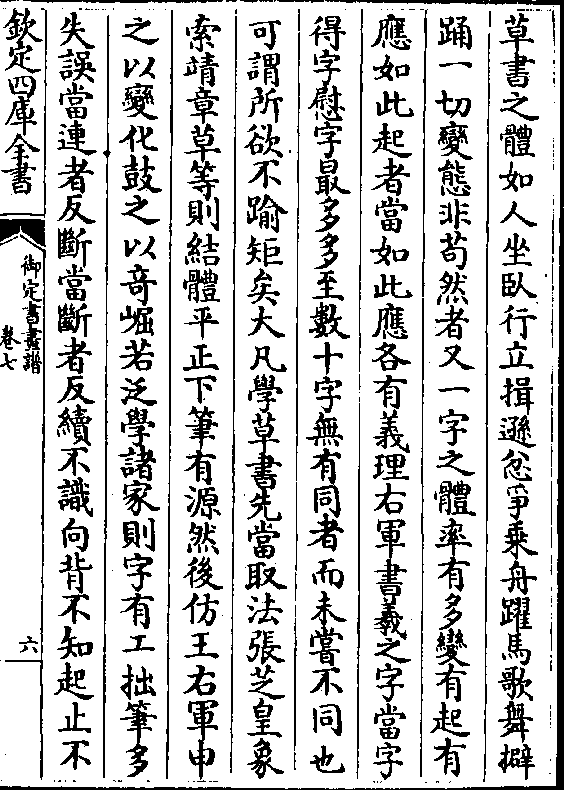 草書之體如人坐臥行立揖遜忿爭乗舟躍馬歌舞擗
踊一切變態非苟然者又一字之體率有多變有起有
應如此起者當如此應各有義理右軍書羲之字當字
得字慰字最多多至數十字無有同者而未嘗不同也
可謂所欲不踰矩矣大凡學草書先當取法張芝皇象
索靖章草等則結體平正下筆有源然後仿王右軍申
之以變化鼓之以奇崛若泛學諸家則字有工拙筆多
失誤當連者反斷當斷者反續不識向背不知起止不
欽定四庫全書
御定書畫譜
卷七
六